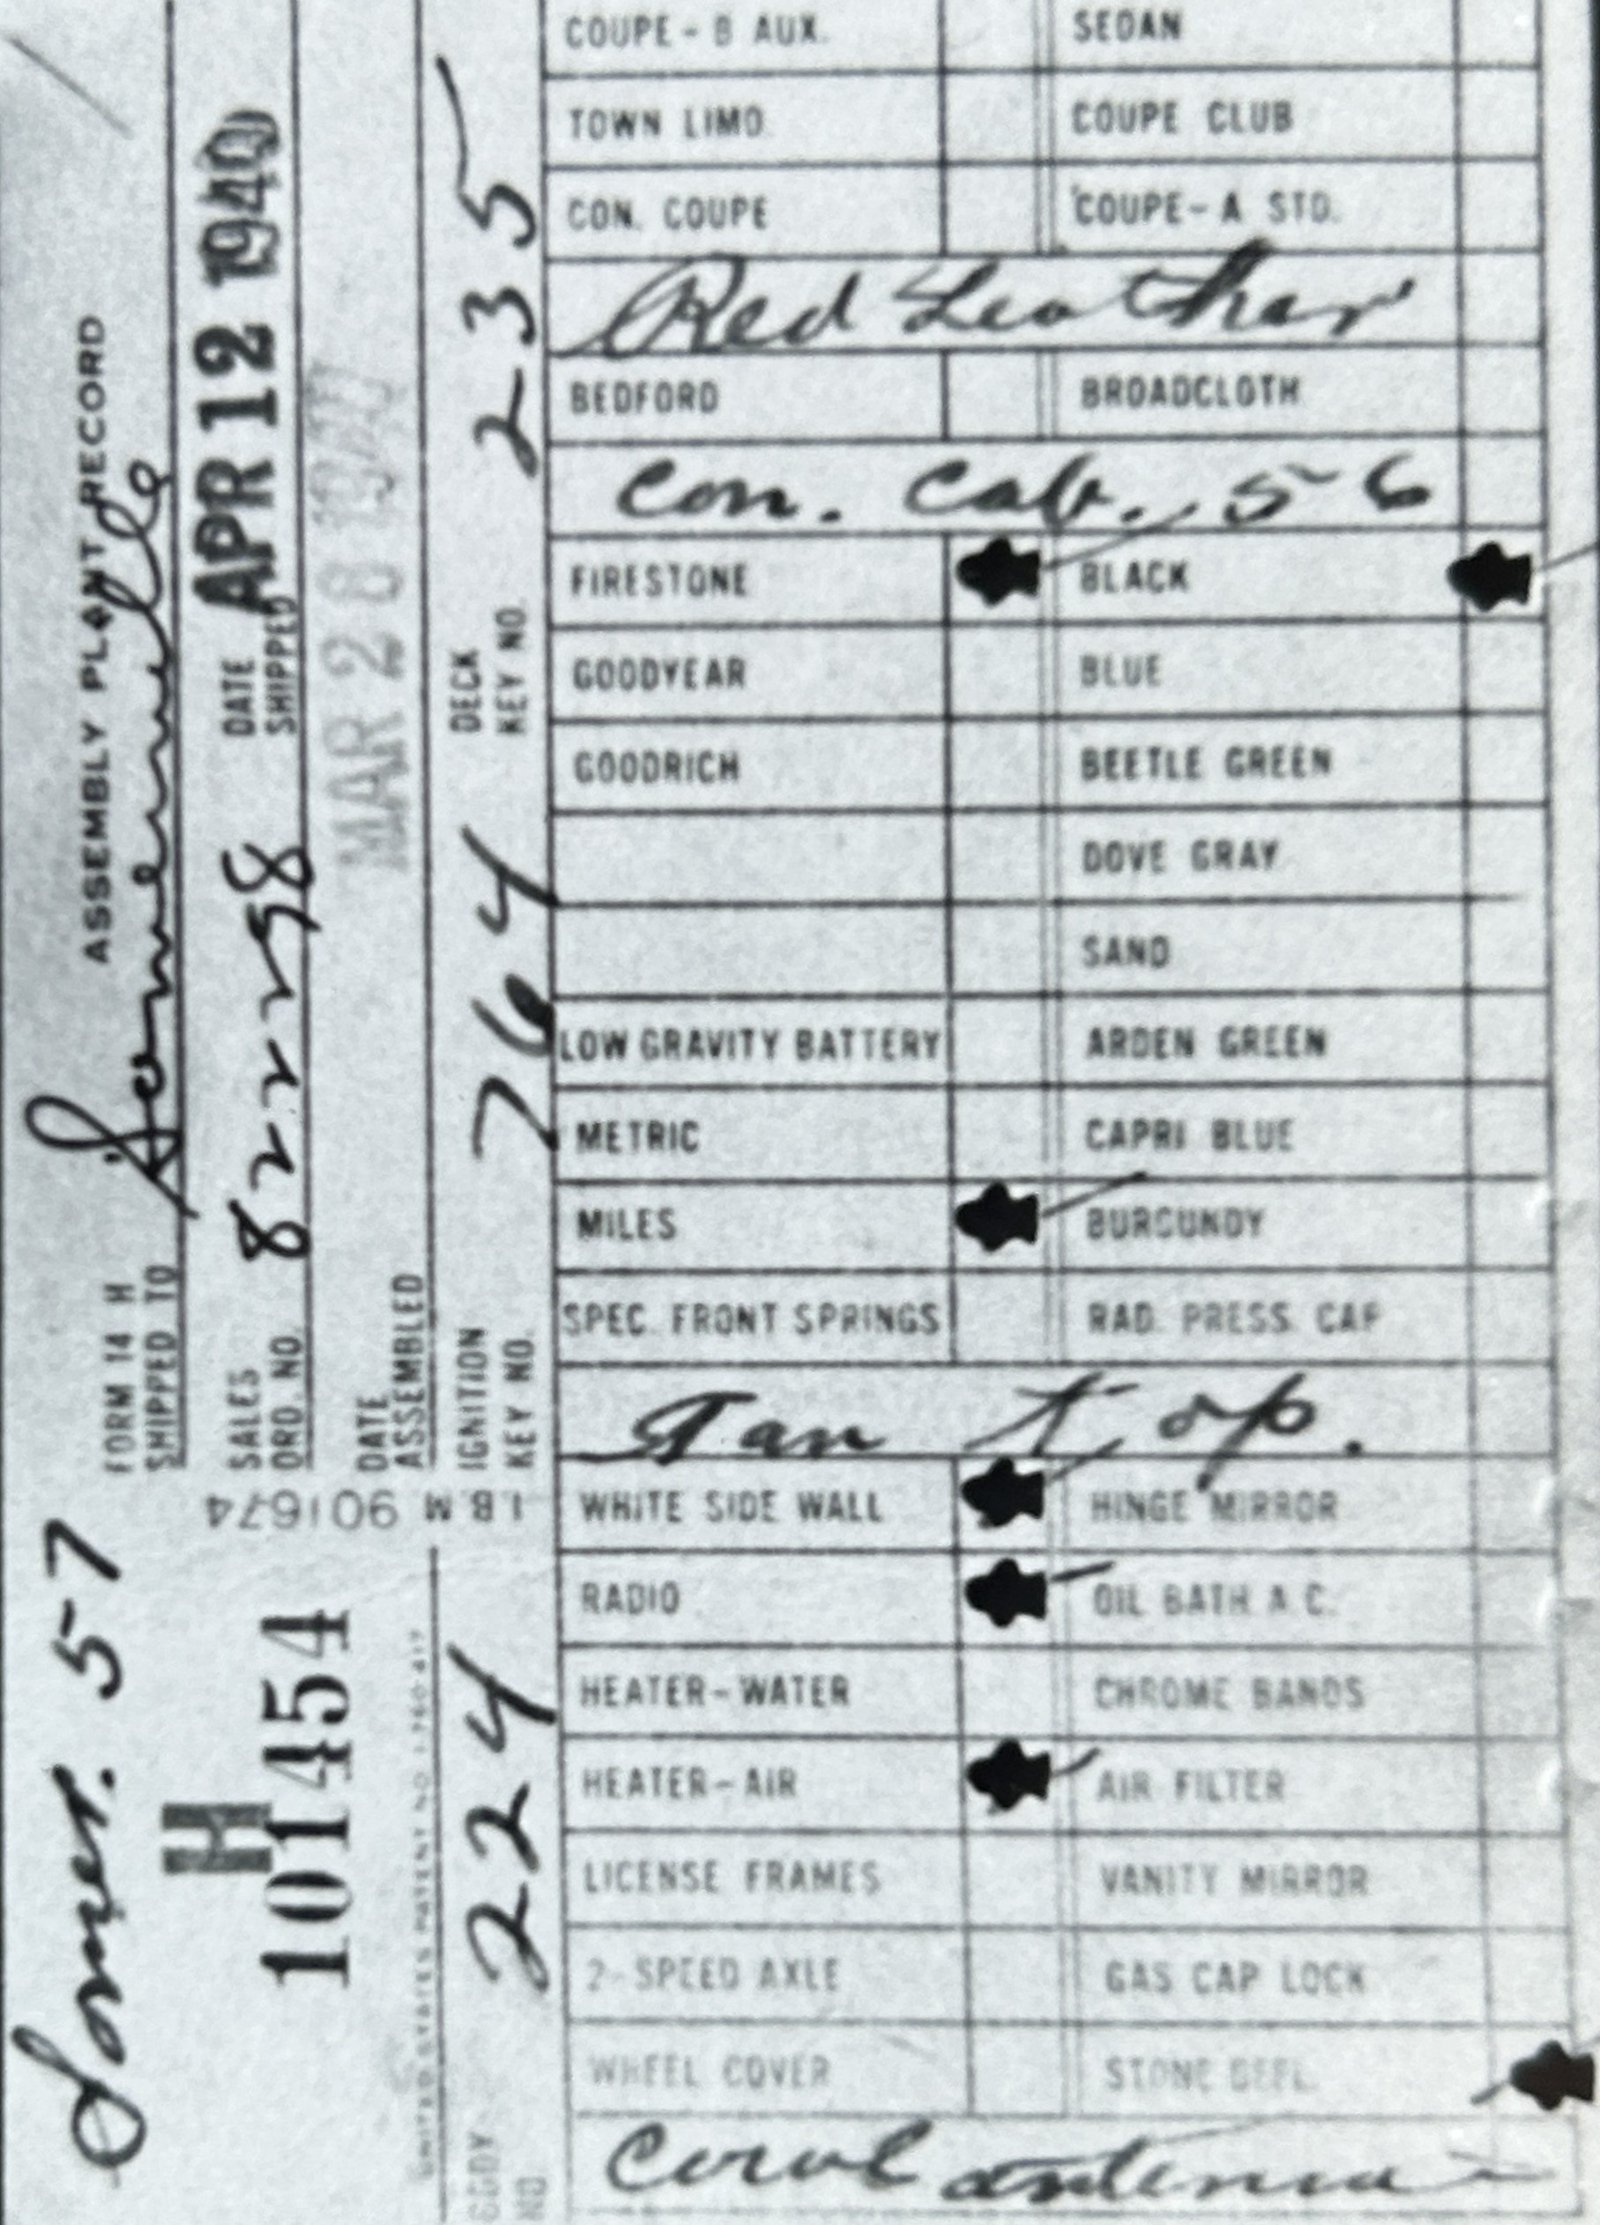 Somer. 57
FORM 14 H
ASSEMBLY PLANT RECORD
SHIPPED TO
Somerville
H
101454
SALES ORD. NO.
82298
DATE SHIPPED
APR 12 1940
DATE ASSEMBLED
MAR 28 1940
I.B.M. 901674
UNITED STATES PATENT NO.
BODY NO.
224
IGNITION KEY NO.
764
DECK KEY NO.
235
COUPE - B AUX. SEDAN
TOWN LIMO. COUPE CLUB
CON. COUPE COUPE - A STD.
Red Leather
BEDFORD BROADCLOTH
Con. Cab. 56
FIRESTONE BLACK
GOODYEAR BLUE
GOODRICH BEETLE GREEN
DOVE GRAY
SAND
LOW GRAVITY BATTERY ARDEN GREEN
METRIC CAPRI BLUE
MILES BURGUNDY
SPEC. FRONT SPRINGS RAD. PRESS. CAP
Tan top.
WHITE SIDE WALL HINGE MIRROR
RADIO OIL BATH A.C.
HEATER - WATER CHROME BANDS
HEATER - AIR AIR FILTER
LICENSE FRAMES VANITY MIRROR
2-SPEED AXLE GAS CAP LOCK
WHEEL COVER STONE DEFL.
Cowl antenna